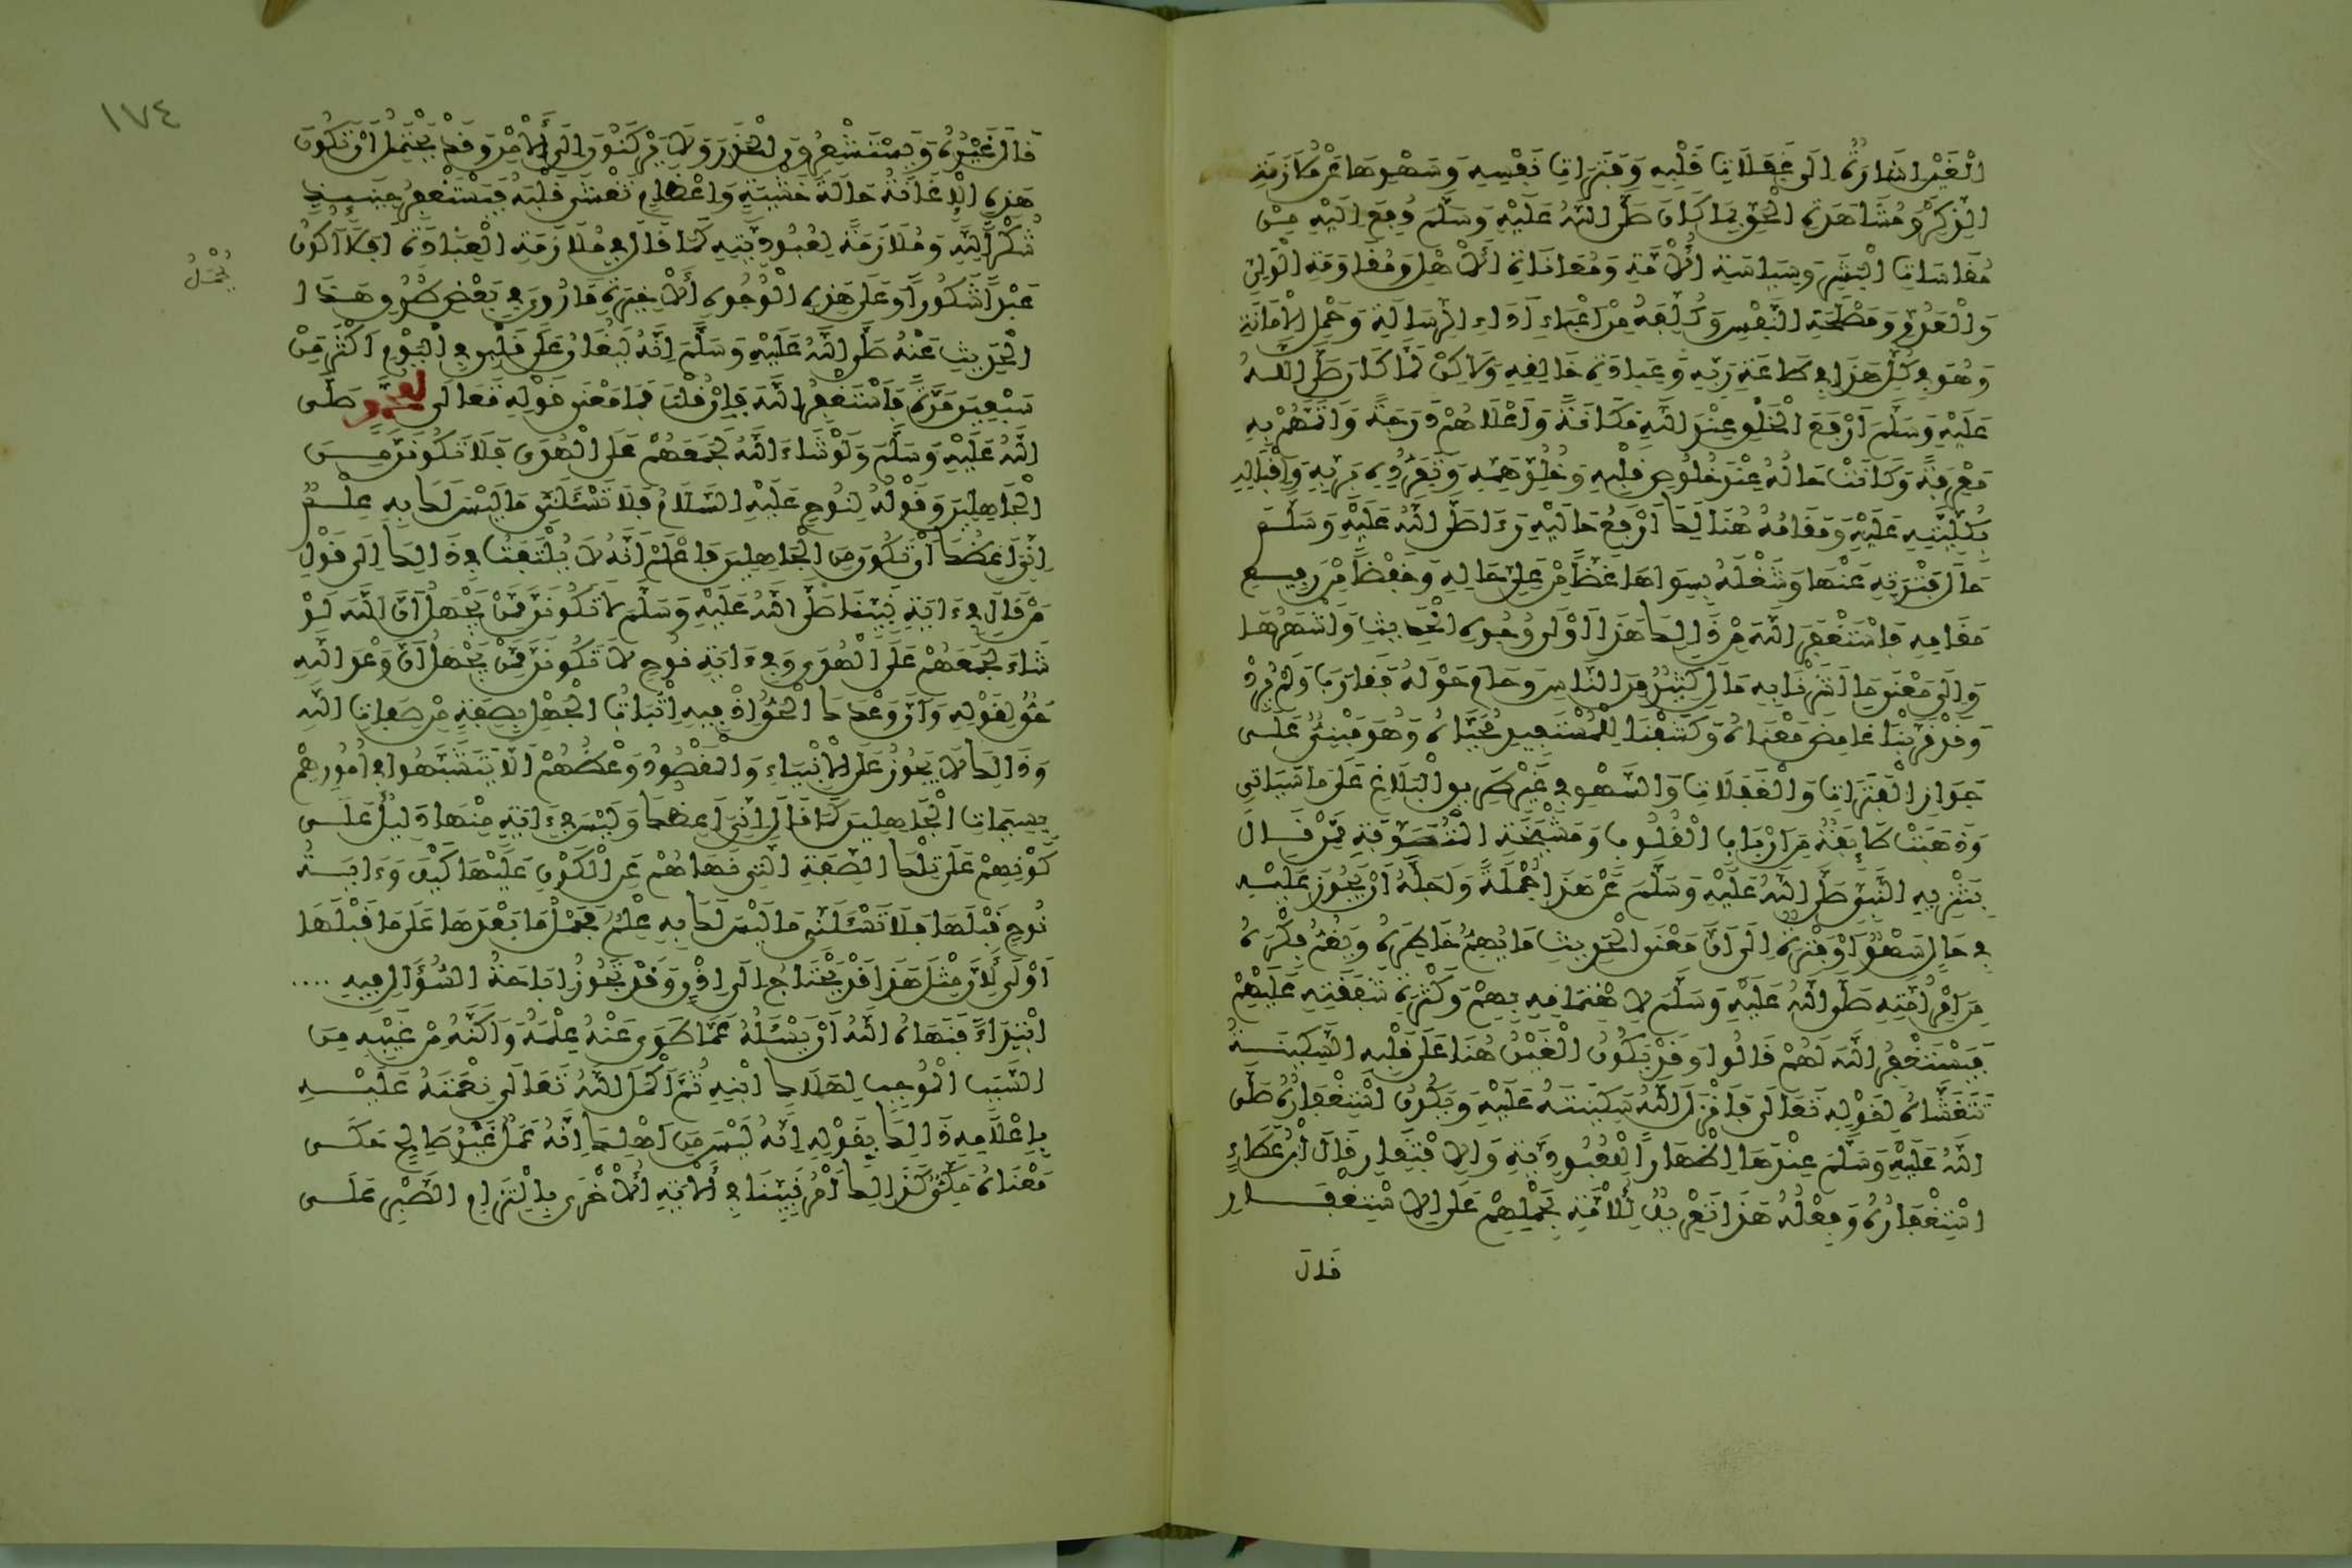 الْغَيْنِ اشَارَةٌ اِلَى غَفَلَاتِ قَلْبِهِ وَفَتَرَاتِ نَفْسِهِ وَسَهْوِهَا عَنْ مُلَازَمَةِ
الذِّكْرِ وَمُشَاهَدَةِ الْحَقِّ بِمَا كَانَ صَلَّى اللَّهُ عَلَيْهِ وَسَلَّمَ دُفِعَ اِلَيْهِ مِنْ
مُقَاسَاتِ الْبَشَرِ وَسِيَاسَةِ الْأُمَّةِ وَمُعَانَاةِ الْأَهْلِ وَمُقَاوَمَةِ الْوَلِيِّ
وَالْعَدُوِّ وَمَصْلَحَةِ النَّفْسِ وَكُلِّفَهُ مِنْ اَعْبَاءِ اَدَاءِ الرِّسَالَةِ وَحَمْلِ الْأَمَانَةِ
وَهُوَ فِي كُلِّ هَذَا فِي طَاعَةِ رَبِّهِ وَعِبَادَةِ خَالِقِهِ وَلَاكِنْ لَمَّا كَانَ صَلَّى اللَّهُ
عَلَيْهِ وَسَلَّمَ اَرْفَعَ الْخَلْقِ عِنْدَ اللَّهِ مَكَانَةً وَاَعْلَاهُمْ دَرَجَةً وَاَتَمَّهُمْ بِهِ
مَعْرِفَةً وَكَانَتْ حَالُهُ عِنْدَ خُلُوصِ قَلْبِهِ وَخُلُوِّ هَمِّهِ وَتَفَرُّدِهِ بِرَبِّهِ وَاِقْبَالِهِ
بِكُلِّيَّتِهِ عَلَيْهِ وَمَقَامُهُ هُنَالِكَ اَرْفَعُ حَالَيْهِ رَءَا صَلَّى اللَّهُ عَلَيْهِ وَسَلَّمَ
حَالَ فَتْرَتِهِ عَنْهَا وَشُغْلَهُ بِسِوَاهَا غَضًّا مِنْ عَلِيِّ حَالِهِ وَخَفْضًا مِنْ رَفِيعِ
مَقَامِهِ فَاسْتَغْفَرَ اللَّهَ مِنْ ذَالِكَ هَذَا اَوْلَى وُجُوهِ الْحَدِيثِ وَاَشْهَرُهَا
وَاِلَى مَعْنَى مَا اَشَرْنَا بِهِ مَالَ كَثِيرٌ مِنَ النَّاسِ وَحَامَ حَوْلَهُ فَقَارَبَ وَلَمْ يَرِدْ
وَقَدْ قَرَّبْنَا غَامِضَ مَعْنَاهُ وَكَشَفْنَا لِلْمُسْتَفِيدِ مُحَيَّاهُ وَهُوَ مَبْنِيٌّ عَلَى
جَوَازِ الْفَتَرَاتِ وَالْغَفَلَاتِ وَالسَّهْوِ فِي غَيْرِ طَرِيقِ الْبَلَاغِ عَلَى مَا سَيَاتِي
وَذَهَبَتْ طَائِفَةٌ مِنْ اَرْبَابِ الْقُلُوبِ وَمَشْيَخَةِ الْمُتَصَوِّفَةِ مِمَّنْ قَالَ
بِتَنْزِيهِ النَّبِيِّ صَلَّى اللَّهُ عَلَيْهِ وَسَلَّمَ عَنْ هَذَا جُمْلَةً وَاَجَلَّهُ اَنْ يَجُوزَ عَلَيْهِ
فِي حَالٍ سَهْوٌ اَوْ فَتْرَةٌ اِلَى اَنَّ مَعْنَى الْحَدِيثِ مَا يُهِمُّ خَاطِرَهُ وَيَغُمُّ فِكْرَهُ
مِنْ اَمْرِ اُمَّتِهِ صَلَّى اللَّهُ عَلَيْهِ وَسَلَّمَ لِاهْتِمَامِهِ بِهِمْ وَكَثْرَةِ شَفَقَتِهِ عَلَيْهِمْ
فَيَسْتَغْفِرُ اللَّهَ لَهُمْ قَالُوا وَقَدْ يَكُونُ الْغَيْنُ هُنَا عَلَى قَلْبِهِ السَّكِينَةُ
تَتَغَشَّاهُ لِقَوْلِهِ تَعَالَى فَاَنْزَلَ اللَّهُ سَكِينَتَهُ عَلَيْهِ وَيَكُونُ اسْتِغْفَارُهُ صَلَّى
اللَّهُ عَلَيْهِ وَسَلَّمَ عِنْدَهَا اِظْهَارًا لِلْعُبُودِيَّةِ وَالِافْتِقَارِ قَالَ ابْنُ عَطَاءٍ
اسْتِغْفَارُهُ وَفِعْلُهُ هَذَا تَعْرِيفٌ لِلْأُمَّةِ بِحَمْلِهِمْ عَلَى الِاسْتِغْفَارِ
قَالَ
١٧٤
قَالَ غَيْرُهُ وَيَسْتَشْعِرُونَ الْحَذَرَ وَلَا يَرْكَنُونَ اِلَى الْأَمْنِ وَقَدْ يَحْتَمِلُ اَنْ تَكُونَ
هَذِهِ الْإِغَانَةُ حَالَةَ خَشْيَةٍ وَاِعْظَامٍ تَغْشَى قَلْبَهُ فَيَسْتَغْفِرُ حِينَئِذٍ
شُكْرًا لِلَّهِ وَمُلَازَمَةً لِعُبُودِيَّتِهِ كَمَا قَالَ فِي مُلَازَمَةِ الْعِبَادَةِ اَفَلَا اَكُونُ
عَبْدًا شَكُورًا وَعَلَى هَذِهِ الْوُجُوهِ الْأَخِيرَةِ مَا رُوِيَ فِي بَعْضِ طُرُقِ هَذَا
يُحْمَلُ
الْحَدِيثِ عَنْهُ صَلَّى اللَّهُ عَلَيْهِ وَسَلَّمَ اِنَّهُ لَيُغَانُ عَلَى قَلْبِي فِي الْيَوْمِ اَكْثَرَ مِنْ
سَبْعِينَ مَرَّةً فَاَسْتَغْفِرُ اللَّهَ فَاِنْ قُلْتَ فَمَا مَعْنَى قَوْلِهِ تَعَالَى لِمُحَمَّدٍ صَلَّى
اللَّهُ عَلَيْهِ وَسَلَّمَ وَلَوْ شَاءَ اللَّهُ لَجَمَعَهُمْ عَلَى الْهُدَى فَلَا تَكُونَنَّ مِنَ
الْجَاهِلِينَ وَقَوْلُهُ لِنُوحٍ عَلَيْهِ السَّلَامُ فَلَا تَسْئَلَنِّ مَا لَيْسَ لَكَ بِهِ عِلْمٌ
اِنِّيَ اَعِظُكَ اَنْ تَكُونَ مِنَ الْجَاهِلِينَ فَاعْلَمْ اَنَّهُ لَا يُلْتَفَتُ فِي ذَالِكَ اِلَى قَوْلِ
مَنْ قَالَ فِي ءَايَةِ نَبِيِّنَا صَلَّى اللَّهُ عَلَيْهِ وَسَلَّمَ لَا تَكُونَنَّ مِمَّنْ يَجْهَلُ اَنَّ اللَّهَ لَوْ
شَاءَ لَجَمَعَهُمْ عَلَى الْهُدَى وَفِي ءَايَةِ نُوحٍ لَا تَكُونَنَّ مِمَّنْ يَجْهَلُ اَنَّ وَعْدَ اللَّهِ
حَقٌّ لِقَوْلِهِ وَاَنَّ وَعْدَكَ الْحَقُّ اِذْ فِيهِ اِثْبَاتُ الْجَهْلِ بِصِفَةٍ مِنْ صِفَاتِ اللَّهِ
وَذَالِكَ لَا يَجُوزُ عَلَى الْأَنْبِيَاءِ وَالْمَقْصُودُ وَعْظُهُمْ اَلَّا يَتَشَبَّهُوا فِي اُمُورِهِمْ
بِسِمَاتِ الْجَاهِلِينَ كَمَا قَالَ اِنِّيَ اَعِظُكَ وَلَيْسَ فِي ءَايَةٍ مِنْهَا دَلِيلٌ عَلَى
كَوْنِهِمْ عَلَى تِلْكَ الصِّفَةِ الَّتِي نَهَاهُمْ عَنِ الْكَوْنِ عَلَيْهَا كَيْفَ وَءَايَةُ
نُوحٍ قَبْلَهَا فَلَا تَسْئَلَنِّي مَا لَيْسَ لَكَ بِهِ عِلْمٌ فَحَمْلُ مَا بَعْدَهَا عَلَى مَا قَبْلَهَا
اَوْلَى لِأَنَّ مِثْلَ هَذَا قَدْ يَحْتَاجُ اِلَى اِذْنٍ وَقَدْ تَجُوزُ اِبَاحَةُ السُّؤَالِ فِيهِ ....
ابْتِدَاءً فَنَهَاهُ اللَّهُ اَنْ يَسْئَلَهُ عَمَّا طَوَى عَنْهُ عِلْمَهُ وَاَكَنَّهُ مِنْ غَيْبِهِ مِنَ
السَّبَبِ الْمُوجِبِ لِهَلَاكِ ابْنِهِ ثُمَّ اَكْمَلَ اللَّهُ تَعَالَى نِعْمَتَهُ عَلَيْهِ
بِاِعْلَامِهِ ذَالِكَ بِقَوْلِهِ اِنَّهُ لَيْسَ مِنَ اَهْلِكَ اِنَّهُ عَمَلٌ غَيْرُ صَالِحٍ حَكَى
مَعْنَاهُ مَكِّيٌّ كَذَالِكَ اُمِرَ نَبِيُّنَا فِي الْأَيَةِ الْأُخْرَى بِالْتِزَامِ الصَّبْرِ عَلَى